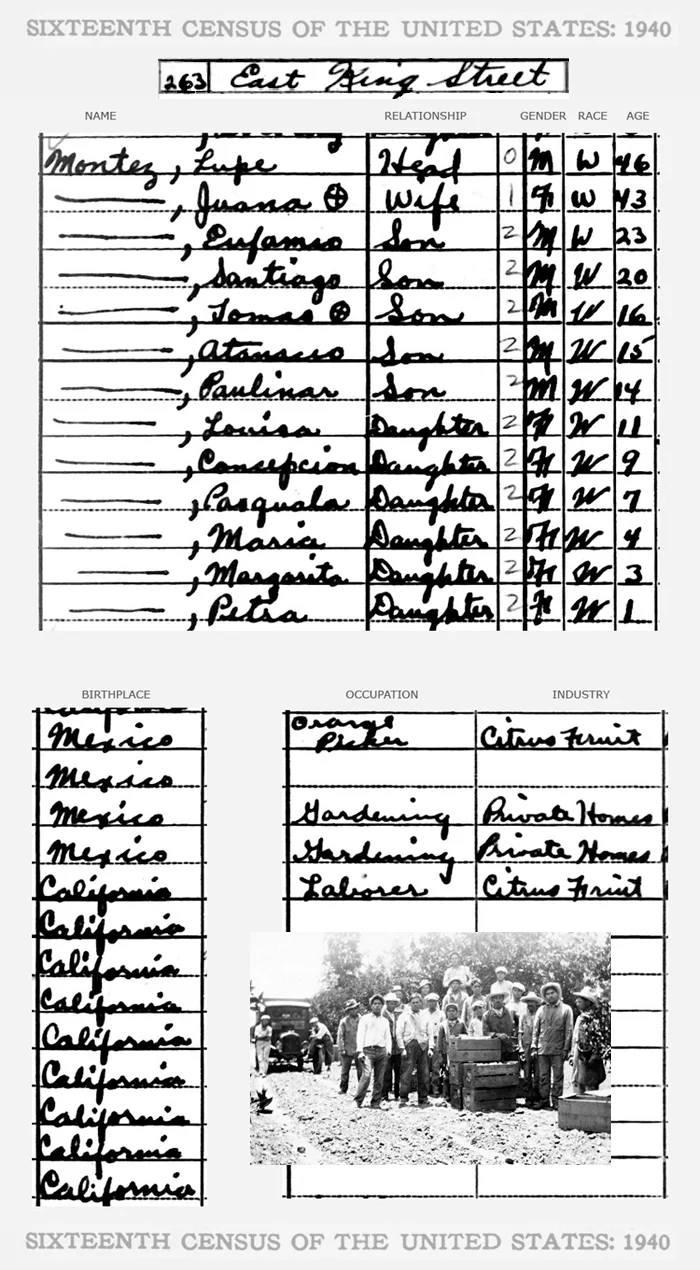 SIXTEENTH CENSUS OF THE UNITED STATES: 1940
263 East King Street
NAME RELATIONSHIP GENDER RACE AGE
Montez, Lupe Head 0 M W 46
, Juana ⊕ Wife 1 F W 43
, Eufamio Son 2 M W 23
, Santiago Son 2 M W 20
, Tomas ⊕ Son 2 M W 16
, Atanacio Son 2 M W 15
, Paulinar Son 2 M W 14
, Louisa Daughter 2 F W 11
, Concepcion Daughter 2 F W 9
, Pasquala Daughter 2 F W 7
, Maria Daughter 2 F W 4
, Margarita Daughter 2 F W 3
, Petra Daughter 2 F W 1
BIRTHPLACE OCCUPATION INDUSTRY
Mexico Orange Picker Citrus Fruit
Mexico
Mexico Gardening Private Homes
Mexico Gardening Private Homes
California Laborer Citrus Fruit
California
California
California
California
California
California
California
California
SIXTEENTH CENSUS OF THE UNITED STATES: 1940